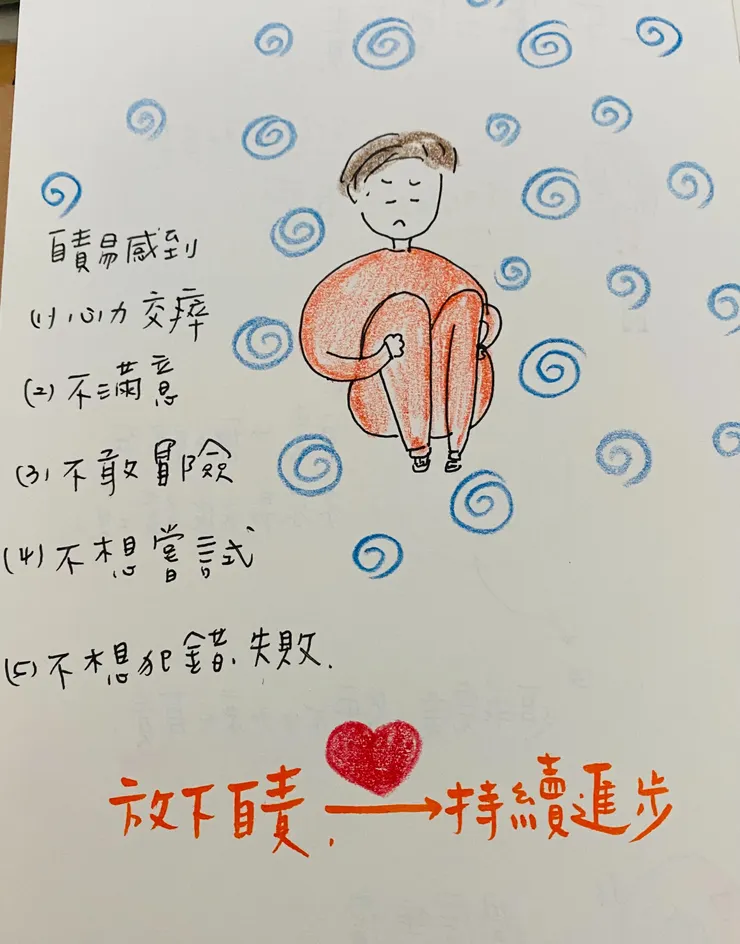 自責易感到
(1) 心力交瘁
(2) 不滿意
(3) 不敢冒險
(4) 不想嘗試
(5) 不想犯錯、失敗.
放下自責, → 持續進步